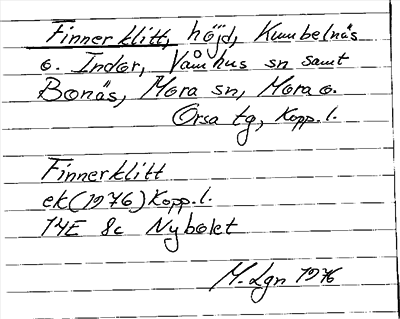 Finnerklitt, höjd, Kumbelnäs
o. Indor, Våmhus sn samt
Bonäs, Mora sn, Mora o.
Orsa tg, Kopp. l.
Finnerklitt
ek (1976) Kopp. l.
14E 8c Nybolet
M. Lgn 1976